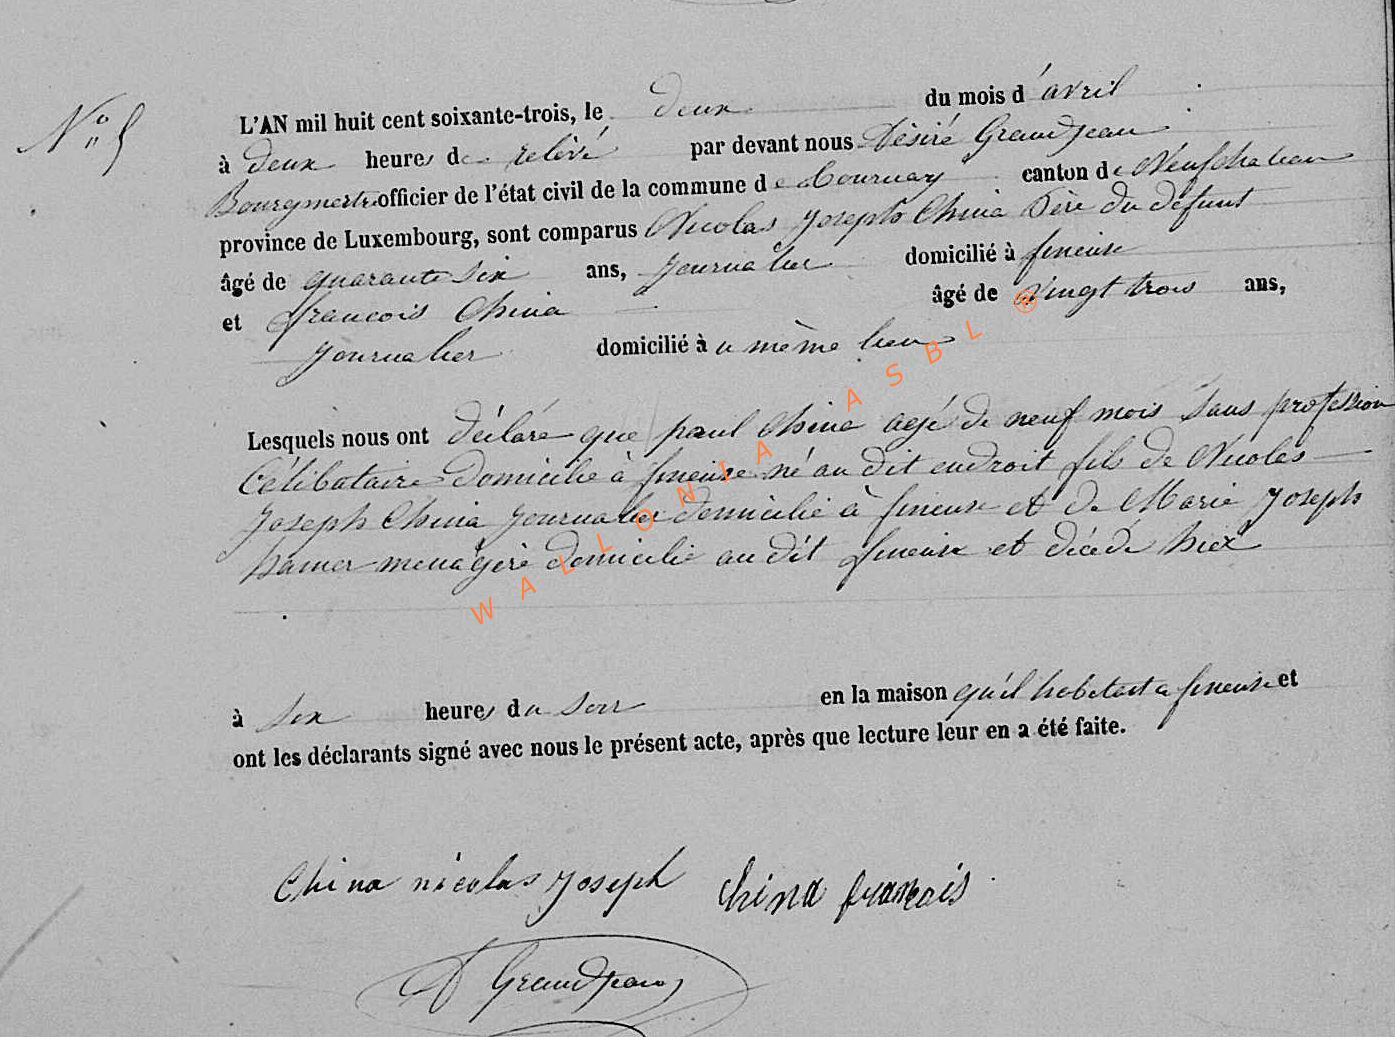 N° 5
L'AN mil huit cent soixante-trois, le deux du mois d'avril
à deux heures de relévé par devant nous Désiré Grandjean
Bourgmestre officier de l'état civil de la commune de Tournay canton de Neufchateau
province de Luxembourg, sont comparus Nicolas Joseph China Père du défunt
âgé de quarante six ans, Journalier domicilié à fineuse
et francois China âgé de vingt trois ans,
Journalier domicilié à u même lieu
Lesquels nous ont déclaré que paul China agé de neuf mois sans profession
Célibataire domicilié à fineuse né au dit endroit fils de Nicolas
Joseph China Journalier domicilié à fineuse et de Marie Joseph
menagère domicilié au dit fineuse et décédé hier
à six heures du soir en la maison qu'il habitait a fineuse et
ont les déclarants signé avec nous le présent acte, après que lecture leur en a été faite.
China nicolas Joseph China francois
D Grandjean
WALLONIA ASBL ®